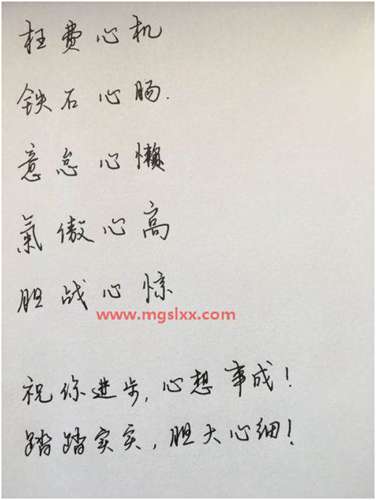 枉费心机
铁石心肠.
意怠心懒
氣傲心高
胆战心惊
www.mgslxx.com
祝你进步,心想事成!
踏踏实实,胆大心细!